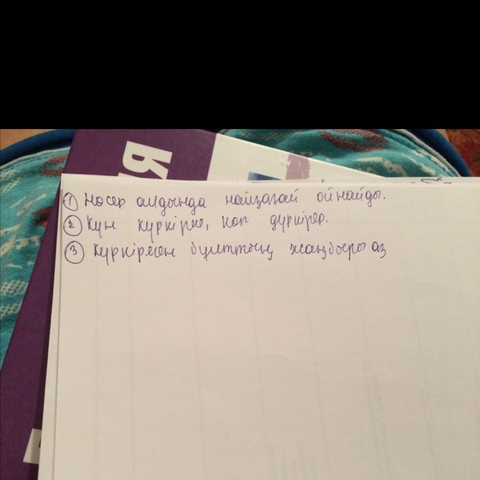 ① Нөсер алдында найзағай ойнайды.
② Күн күркіресе, көп дүркірер.
③ Күркіреген бұлттың жаңбыры аз